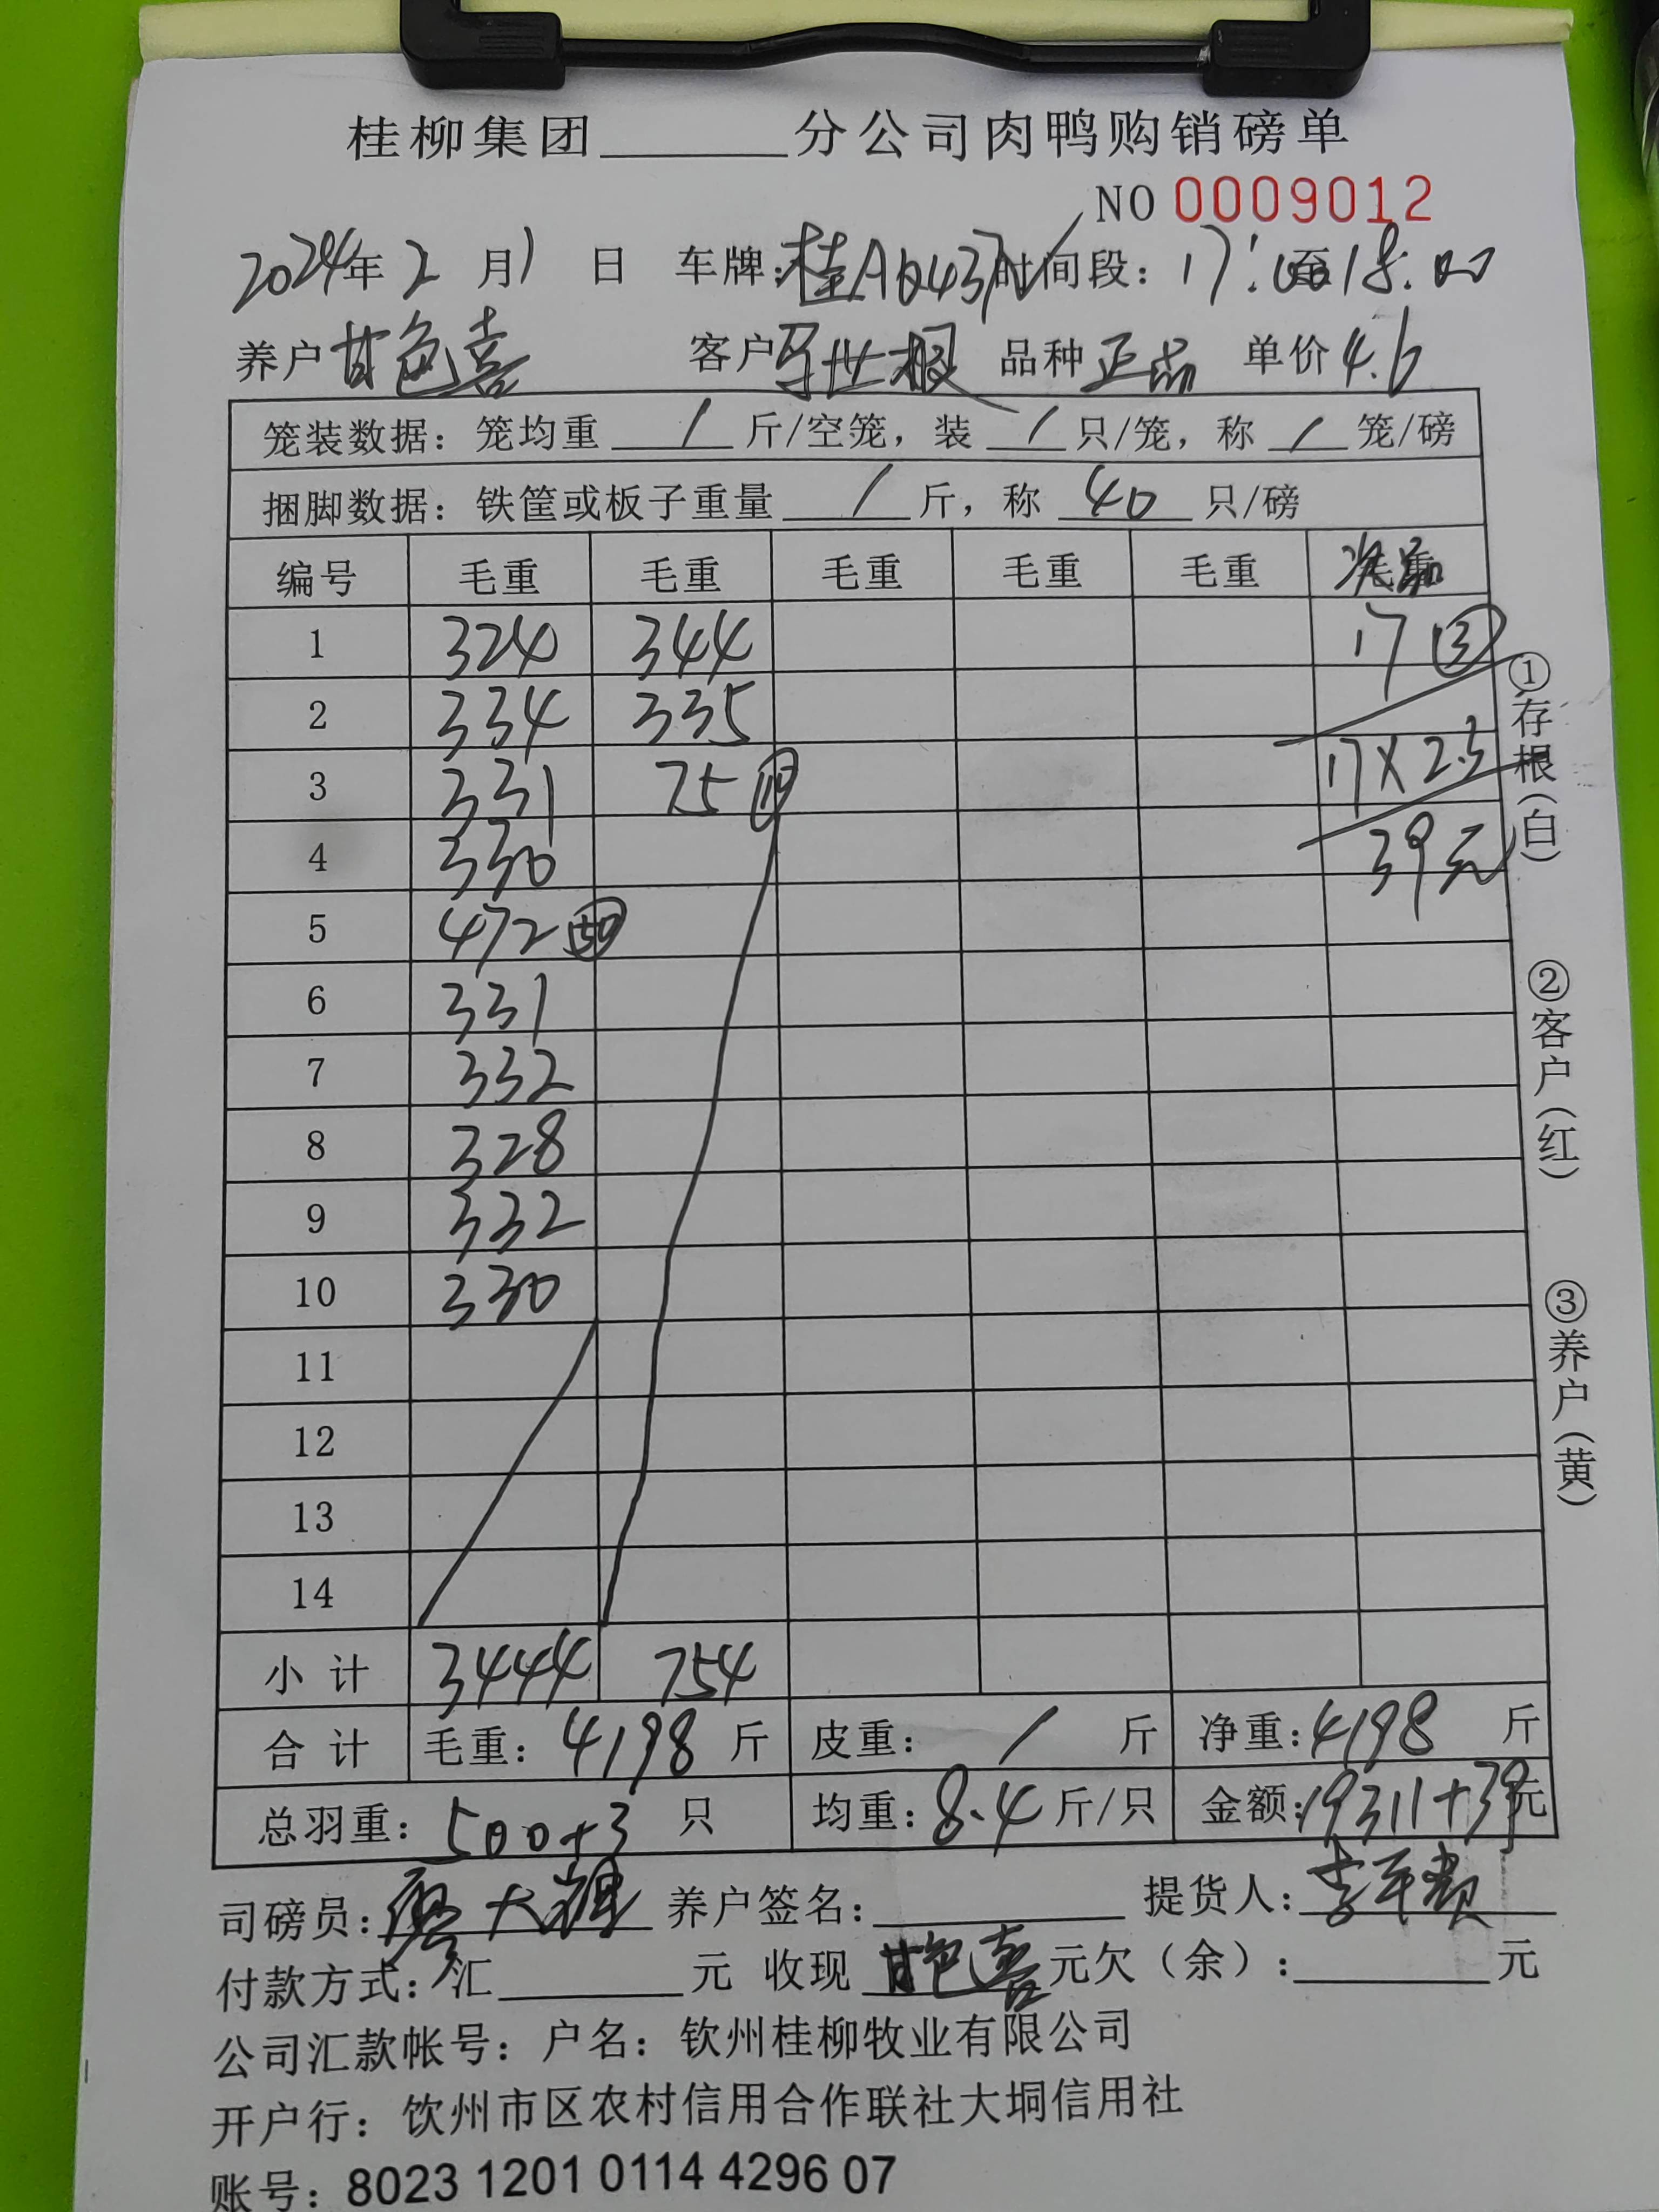 桂柳集团______分公司肉鸭购销磅单
NO 0009012
2024年2月1日 车牌:桂A 时间段:17:00至18:00
养户 甘色喜 客户 品种 正品 单价 4.6
笼装数据:笼均重 / 斤/空笼,装 / 只/笼,称 / 笼/磅
捆脚数据:铁筐或板子重量 / 斤,称 40 只/磅
编号 毛重 毛重 毛重 毛重 毛重 次品
1 324 344 17 ③
2 334 335
3 331 75 17×2.3
4 330 39元
5 472
6 331
7 332
8 328
9 332
10 330
11
12
13
14
小计 3444 754
合计 毛重:4198 斤 皮重: / 斤 净重:4198 斤
总羽重:500+3 只 均重:8.4 斤/只 金额:19311+39元
司磅员: 养户签名: 提货人:
付款方式:汇______元 收现 甘色喜 元欠(余):______元
公司汇款帐号:户名:钦州桂柳牧业有限公司
开户行:钦州市区农村信用合作联社大垌信用社
账号:8023 1201 0114 4296 07
①存根(白)
②客户(红)
③养户(黄)